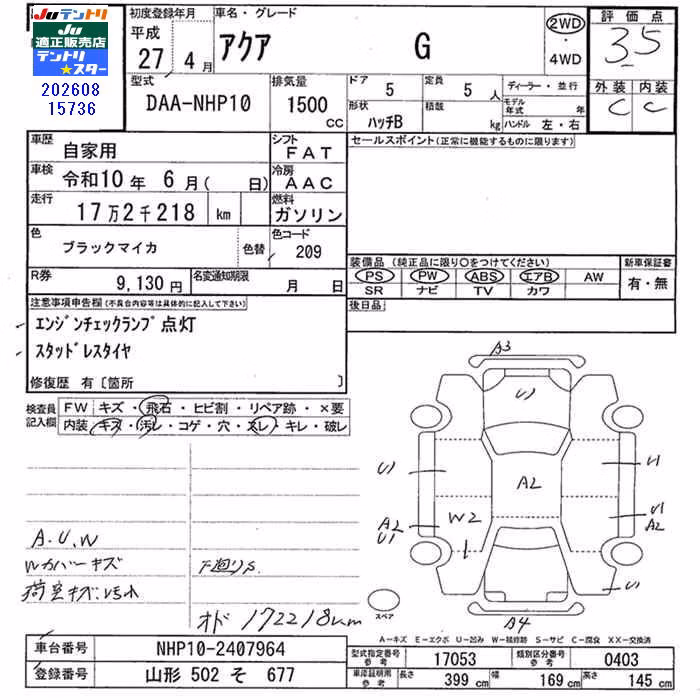 Juテントリ
Ju
適正販売店
テントリ
★スター
202608
15736
初度登録年月
平成
27 4月
車名・グレード
アクア G
2WD
・
4WD
評価点
3.5
外装 内装
C C
型式
DAA-NHP10
排気量
1500
CC
ドア
5
定員
5人
形状
ハッチB
積載
kg
ディーラー・並行
モデル年式 年
ハンドル 左・右
車歴
自家用
シフト
FAT
車検
令和10年 6月( 日)
冷房
AAC
走行
17万2千218 km
燃料
ガソリン
色
ブラックマイカ
色替
色コード
209
R券
9,130円
名変通知期限
月 日
セールスポイント(正常に機能するものに限ります)
装備品(純正品に限り○をつけてください)
PS PW ABS エアB AW
SR ナビ TV カワ
新車保証書
有・無
後日品
注意事項申告欄(不具合内容等は具体的に記入して下さい)
エンジンチェックランプ点灯
スタッドレスタイヤ
修復歴 有〔箇所 〕
検査員
記入欄
FW キズ・飛石・ヒビ割・リペア跡・×要
内装 キズ・汚レ・コゲ・穴・スレ・キレ・破レ
A.U.W
Wカバーキズ
荷室キズ、汚れ
下廻りS
オド 172218km
A3
U1
U1
U1
A2
A2
U1
W2
1
U1
A2
U1
A4
スペア
A-キズ E-エクボ U-凹み W-補修跡 S-サビ C-腐食 XX-交換済
車台番号
NHP10-2407964
登録番号
山形 502 そ 677
型式指定番号
参考
17053
類別区分番号
参考
0403
車庫証明用
参考
長さ
399 cm
幅
169 cm
高さ
145 cm